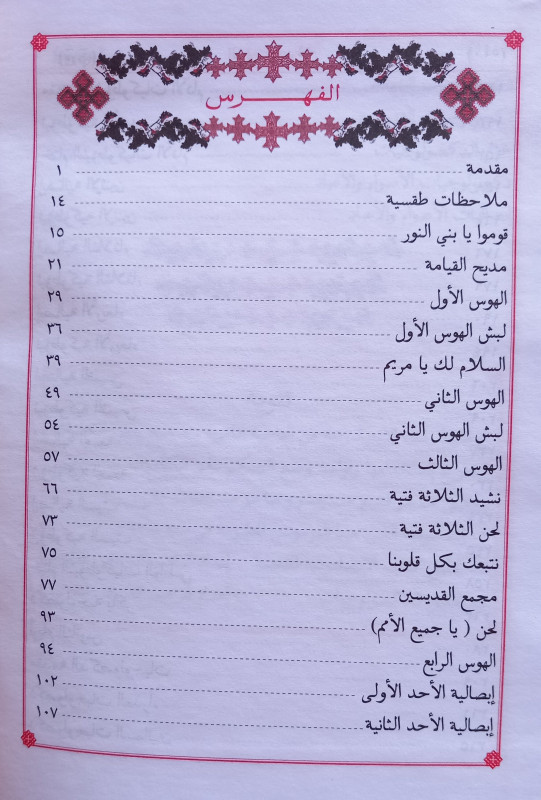 الفهرس
مقدمة ١
ملاحظات طقسية ١٤
قوموا يا بني النور ١٥
مديح القيامة ٢١
الهوس الأول ٢٩
لبش الهوس الأول ٣٦
السلام لك يا مريم ٣٩
الهوس الثاني ٤٩
لبش الهوس الثاني ٥٤
الهوس الثالث ٥٧
نشيد الثلاثة فتية ٦٦
لحن الثلاثة فتية ٧٣
نتبعك بكل قلوبنا ٧٥
مجمع القديسين ٧٧
لحن ( يا جميع الأمم) ٩٣
الهوس الرابع ٩٤
إبصالية الأحد الأولى ١٠٢
إبصالية الأحد الثانية ١٠٧